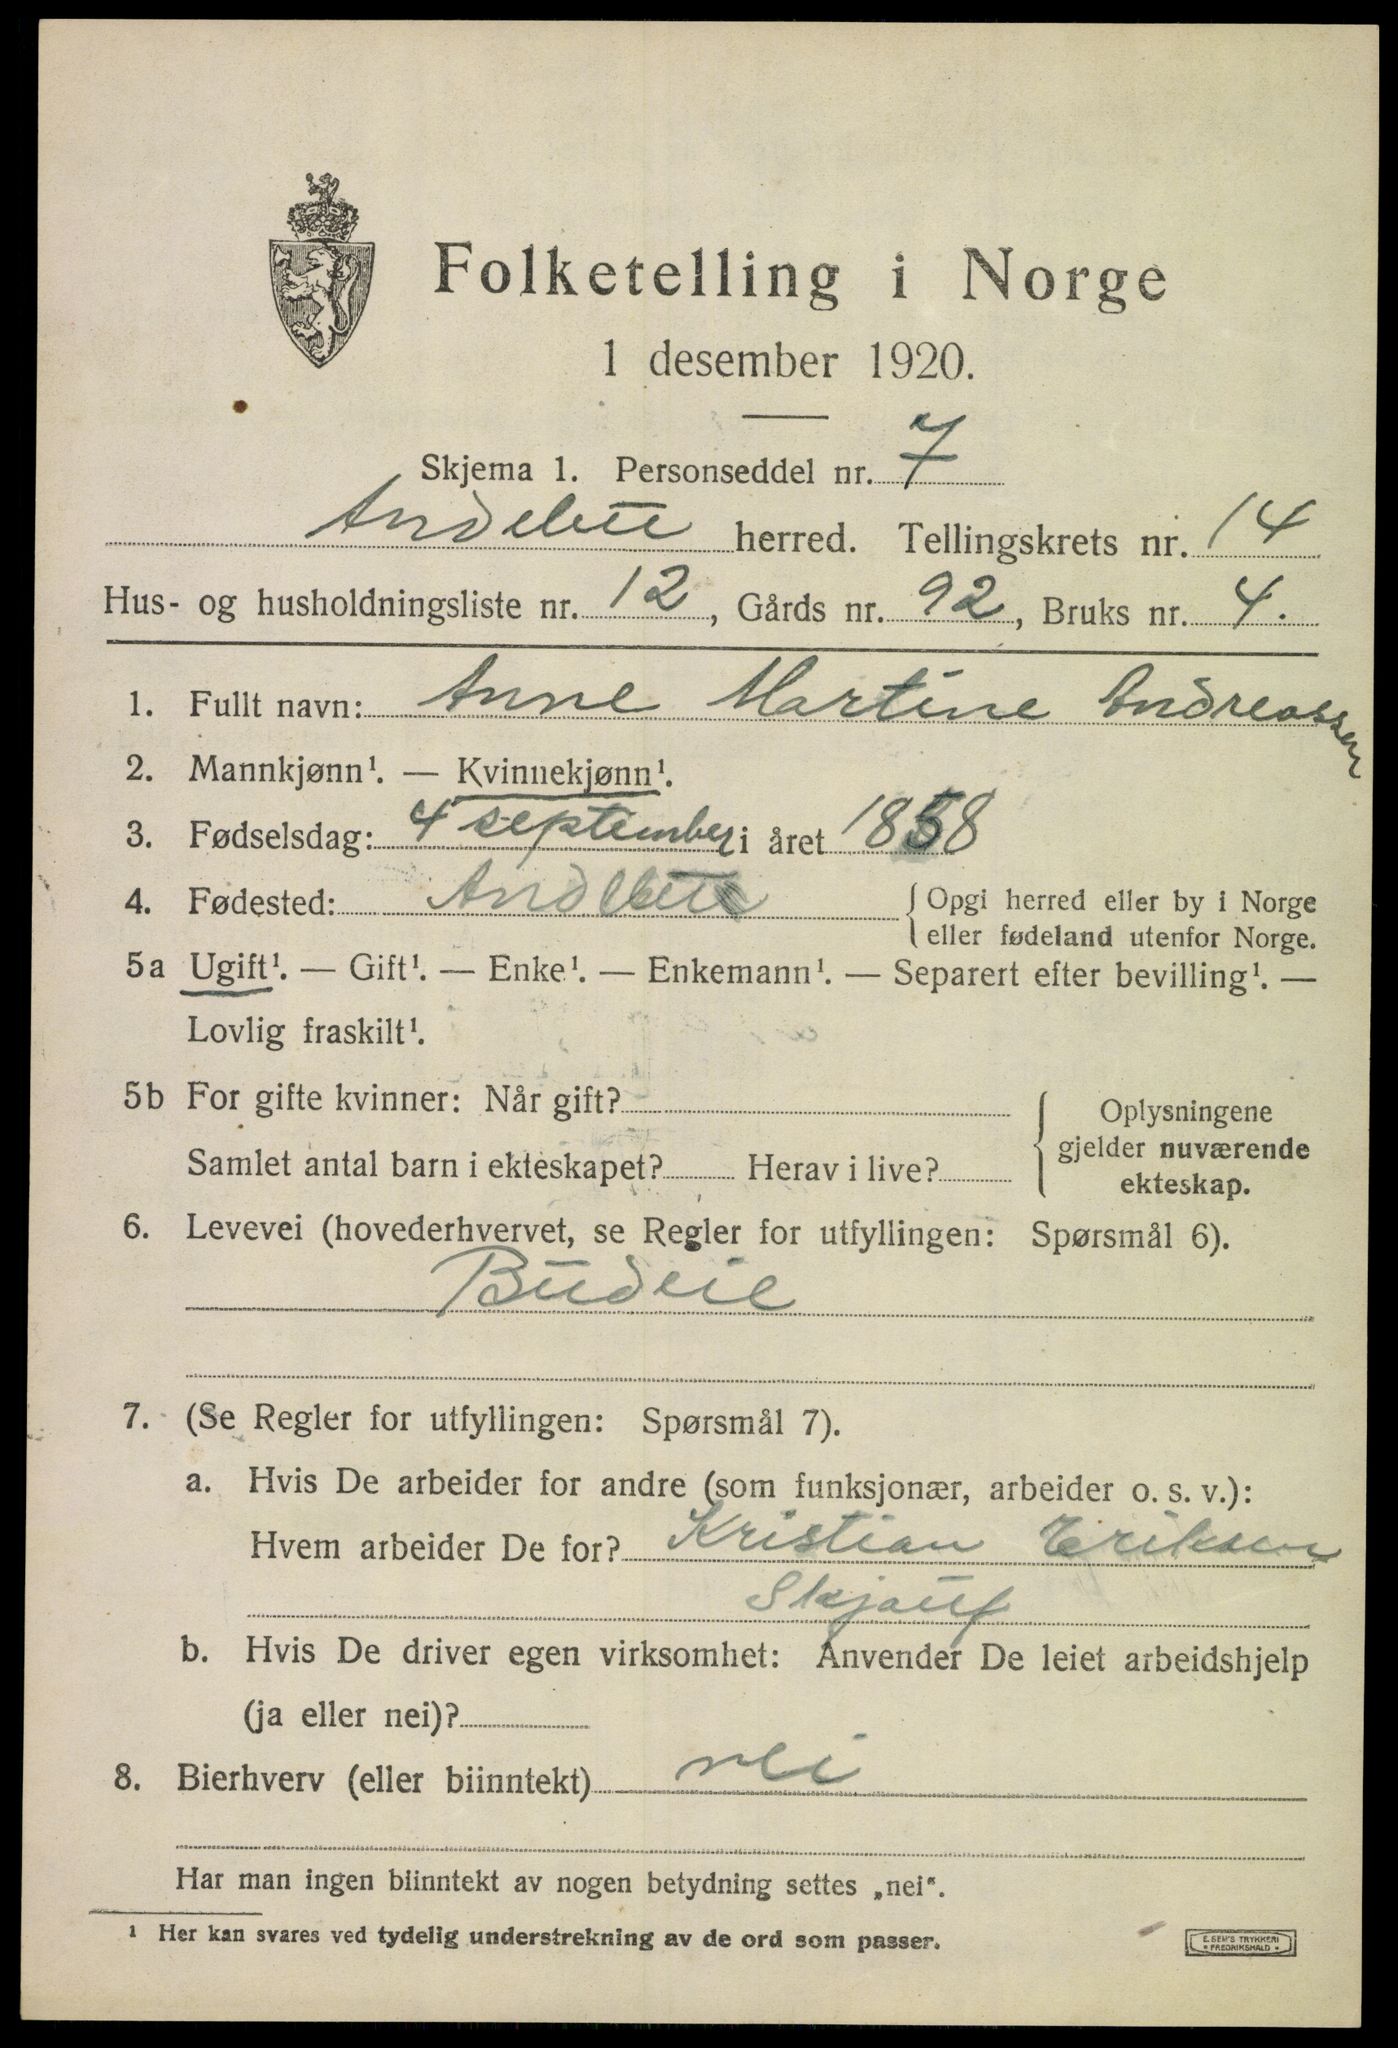 Folketelling i Norge
1 desember 1920.
Skjema 1. Personseddel nr. 7
Andebu herred. Tellingskrets nr. 14
Hus- og husholdningsliste nr. 12, Gårds nr. 92, Bruks nr. 4.
1. Fullt navn: Anne Martine Andreassen
2. Mannkjønn¹. — Kvinnekjønn¹.
3. Fødselsdag: 4 september i året 1858
4. Fødested: Andebu {Opgi herred eller by i Norge
eller fødeland utenfor Norge.
5a Ugift¹. — Gift¹. — Enke¹. — Enkemann¹. — Separert efter bevilling¹. —
Lovlig fraskilt¹.
5b For gifte kvinner: Når gift?
Samlet antal barn i ekteskapet? Herav i live?
{Oplysningene
gjelder nuværende
ekteskap.
6. Levevei (hovederhvervet, se Regler for utfyllingen: Spørsmål 6).
Budeie
7. (Se Regler for utfyllingen: Spørsmål 7).
a. Hvis De arbeider for andre (som funksjonær, arbeider o. s. v.):
Hvem arbeider De for? Kristian Eriksen
Skjauf
b. Hvis De driver egen virksomhet: Anvender De leiet arbeidshjelp
(ja eller nei)?
8. Bierhverv (eller biinntekt) nei
Har man ingen biinntekt av nogen betydning settes „nei“.
¹ Her kan svares ved tydelig understrekning av de ord som passer.
E. SEM'S TRYKKERI
* FREDRIKSHALD *